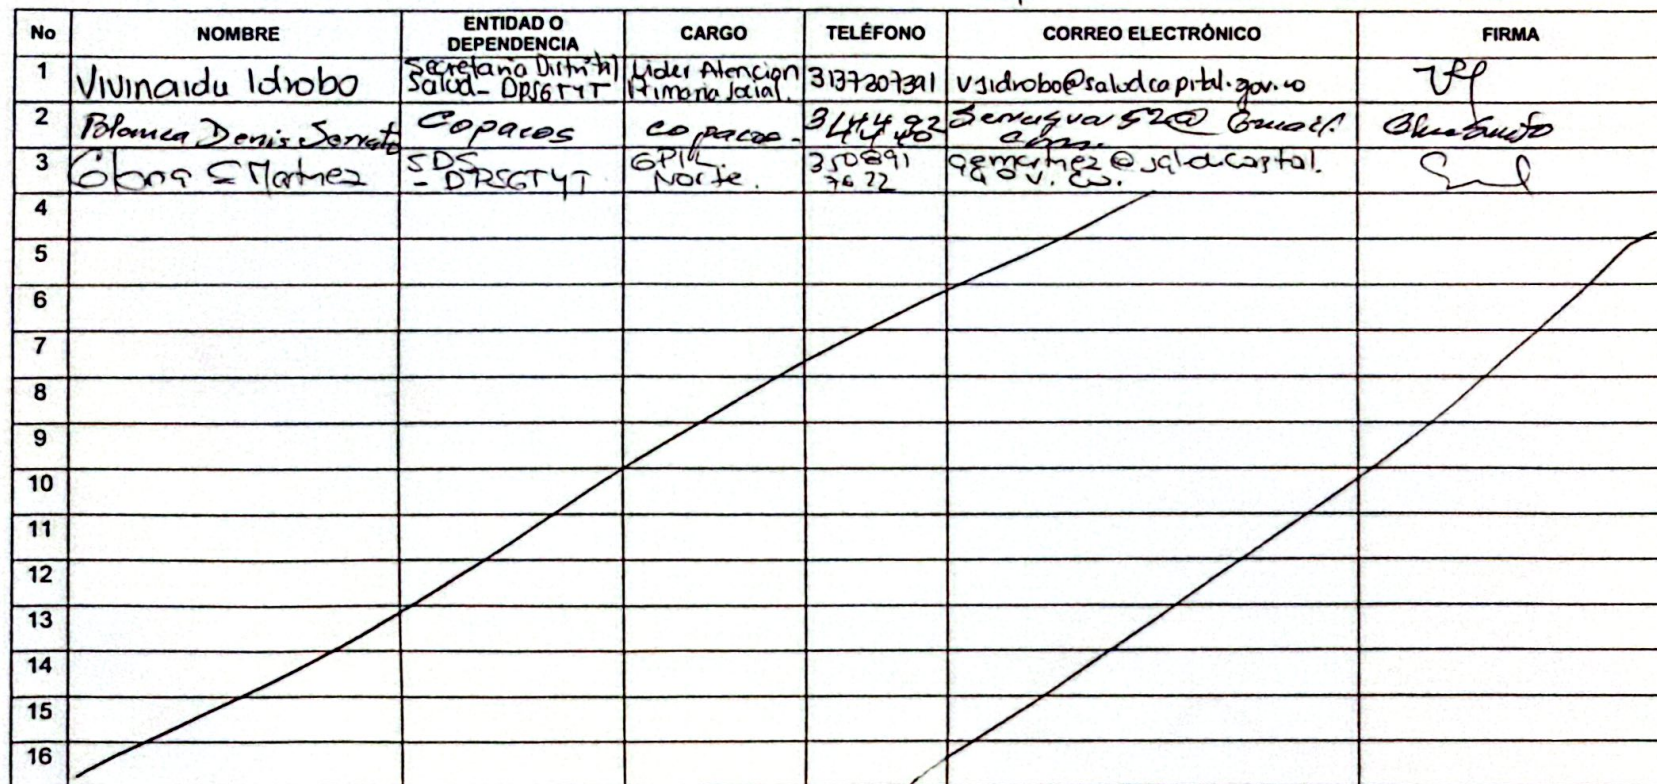 No NOMBRE ENTIDAD O DEPENDENCIA CARGO TELÉFONO CORREO ELECTRÓNICO FIRMA
1 Vivinaidu Idrobo Secretaria Distrital Salud - DPSGTYT Lider Atencion Primaria Social. 3137207391 vjidrobo@saludcapital.gov.co
2 Denis Serrato Copacos copacos -
3 Gloria E Martinez SDS - DPSGTYT Norte. 350891 7622 gemartinez@saludcapital. gov.co.
4
5
6
7
8
9
10
11
12
13
14
15
16